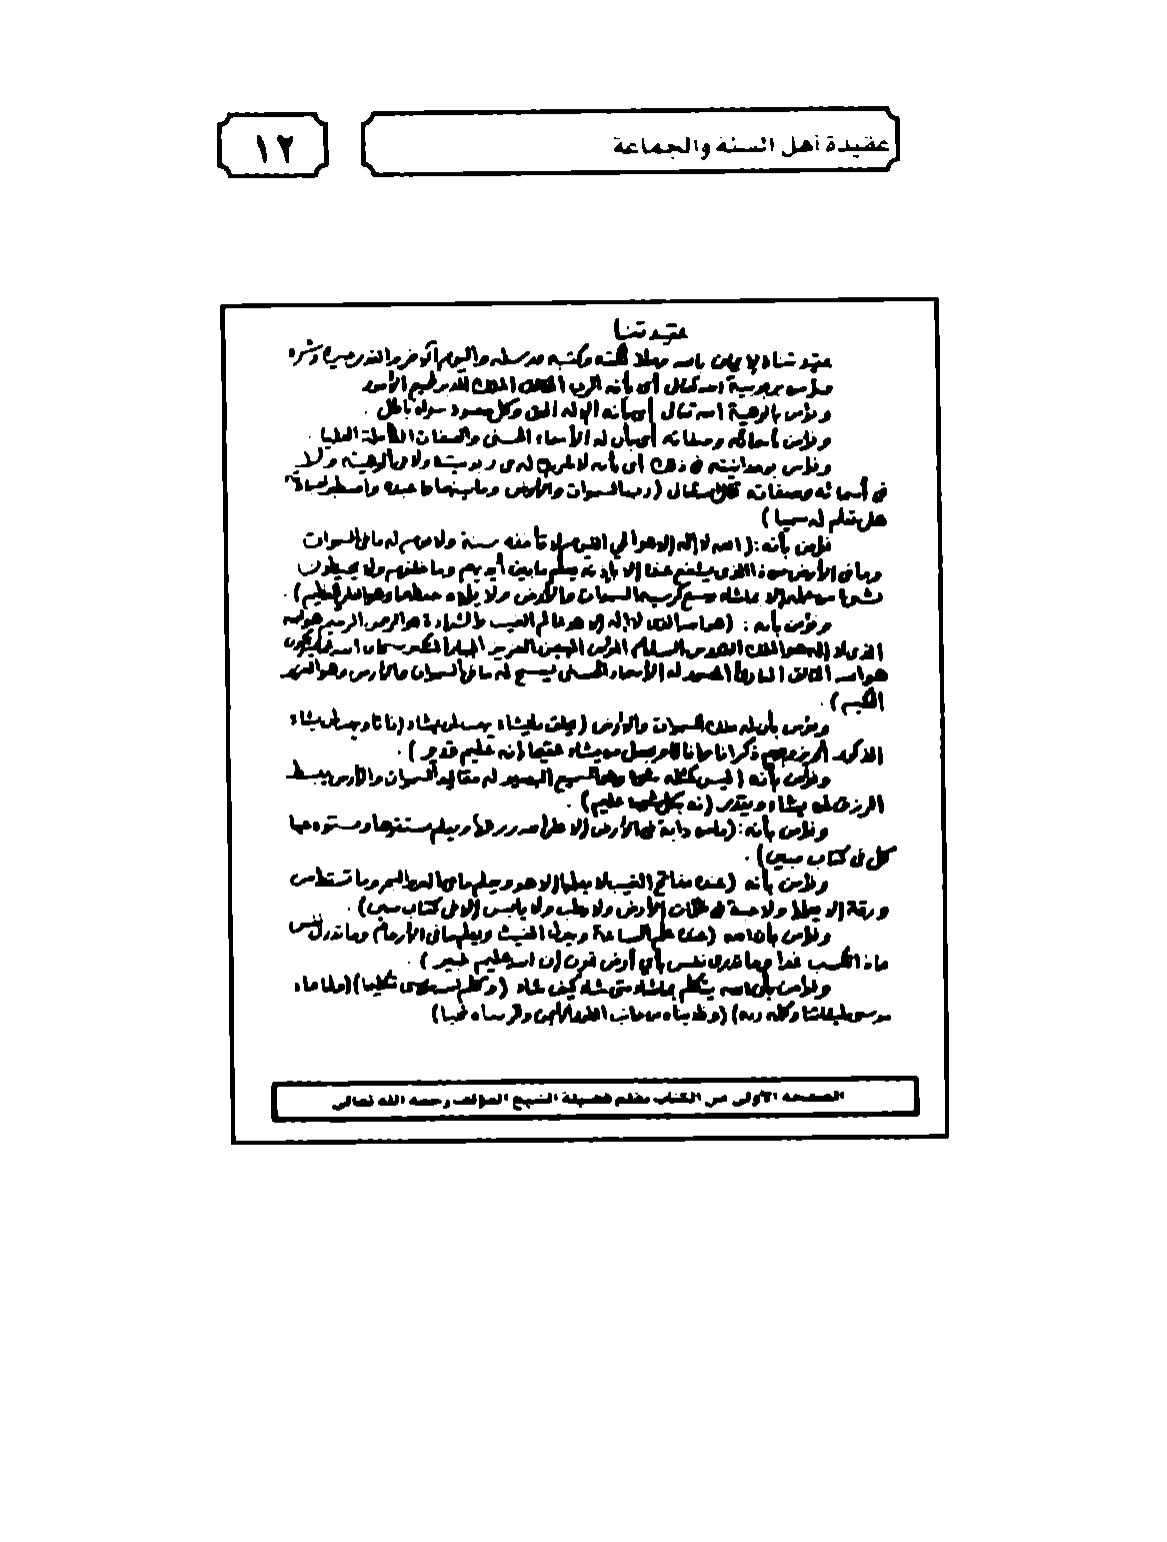 عقيدة أهل السنة والجماعة
١٢
عقيدتنا
عقيدتنا الإيمان بالله وملائكته وكتبه ورسله واليوم الآخر والقدر خيره وشره
فنؤمن بربوبية الله تعالى أي بأنه الرب الخالق الملك المدبر لجميع الأمور
ونؤمن بألوهية الله تعالى أي بأنه الإله الحق وكل معبود سواه باطل .
ونؤمن بأسمائه وصفاته أي بأن له الأسماء الحسنى والصفات الكاملة العليا .
ونؤمن بوحدانيته في ذلك أي بأنه لا شريك له في ربوبيته ولا في ألوهيته ولا
في أسمائه وصفاته قال الله تعالى (رب السموات والأرض وما بينهما فاعبده واصطبر لعبادته
هل تعلم له سميا)
نؤمن بأنه : (الله لا إله إلا هو الحي القيوم لا تأخذه سنة ولا نوم له ما في السموات
وما في الأرض من ذا الذي يشفع عنده إلا بإذنه يعلم ما بين أيديهم وما خلفهم ولا يحيطون
بشيء من علمه إلا بما شاء وسع كرسيه السموات والأرض ولا يؤده حفظهما وهو العلي العظيم) .
ونؤمن بأنه : (هو الله الذي لا إله إلا هو عالم الغيب والشهادة هو الرحمن الرحيم هو الله
الذي لا إله إلا هو الملك القدوس السلام المؤمن المهيمن العزيز الجبار المتكبر سبحان الله عما يشركون
هو الله الخالق البارئ المصور له الأسماء الحسنى يسبح له ما في السموات والأرض وهو العزيز
الحكيم) .
ونؤمن بأن له ملك السموات والأرض (يخلق ما يشاء يهب لمن يشاء إناثا ويهب لمن يشاء
الذكور أو يزوجهم ذكرانا وإناثا ويجعل من يشاء عقيما إنه عليم قدير) .
ونؤمن بأنه (ليس كمثله شيء وهو السميع البصير له مقاليد السموات والأرض يبسط
الرزق لمن يشاء ويقدر إنه بكل شيء عليم) .
ونؤمن بأنه : (وما من دابة في الأرض إلا على الله رزقها ويعلم مستقرها ومستودعها
كل في كتاب مبين) .
ونؤمن بأنه (عنده مفاتح الغيب لا يعلمها إلا هو ويعلم ما في البر والبحر وما تسقط من
ورقة إلا يعلمها ولا حبة في ظلمات الأرض ولا رطب ولا يابس إلا في كتاب مبين) .
ونؤمن بأن الله (عنده علم الساعة وينزل الغيث ويعلم ما في الأرحام وما تدري نفس
ماذا تكسب غدا وما تدري نفس بأي أرض تموت إن الله عليم خبير) .
ونؤمن بأن الله يتكلم بما شاء متى شاء كيف شاء (وكلم الله موسى تكليما) (ولما جاء
موسى لميقاتنا وكلمه ربه) (وناديناه من جانب الطور الأيمن وقربناه نجيا)
الصفحة الأولى من الكتاب بقلم فضيلة الشيخ المؤلف رحمه الله تعالى